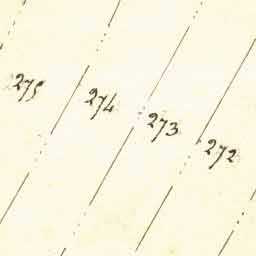 275
274
273
272